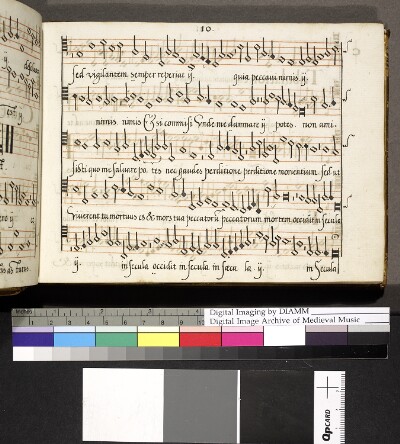 10
sed vigilantem semper reperiat ij. quia peccavi nimis ij.
nimis nimis & si commisi Unde me damnare ij potes. non ami-
sisti quo me salvare po- tes nec gaudes perditione perditione morientium. sed ut
viverent tu mortuus es & mors tua peccatorū peccatorum mortem occidit in secula
ij. in secula occidit in secula in secu la ij. in Secula
Digital Imaging by DIAMM
Digital Image Archive of Medieval Music
QPCARD